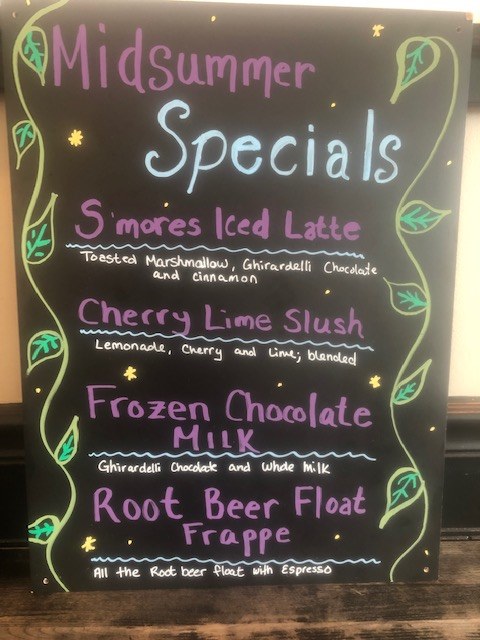 Midsummer
Specials
S'mores Iced Latte
Toasted Marshmallow, Ghirardelli Chocolate
and cinnamon
Cherry Lime Slush
Lemonade, Cherry and Lime; blended
Frozen Chocolate
MILK
Ghirardelli Chocolate and Whole Milk
Root Beer Float
Frappe
All the Root beer float with Espresso